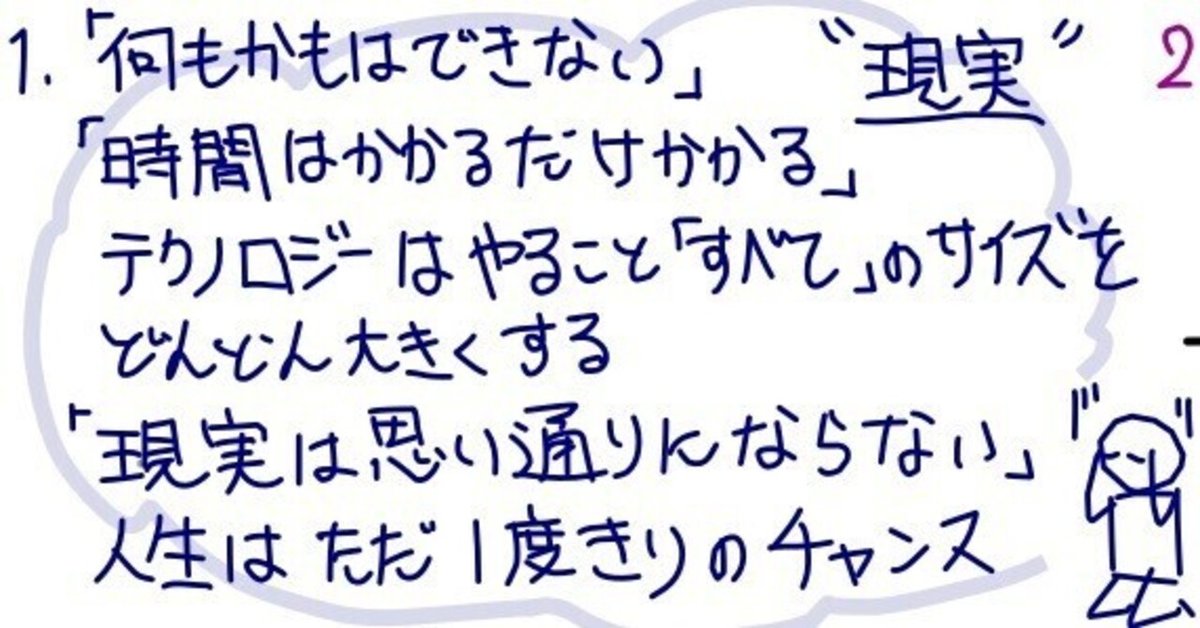 1.「何もかもはできない」 〝現実〟 2
「時間はかかるだけかかる」
テクノロジーはやること「すべて」のサイズを
どんどん大きくする
「現実は思い通りにならない」
人生はただ1度きりのチャンス